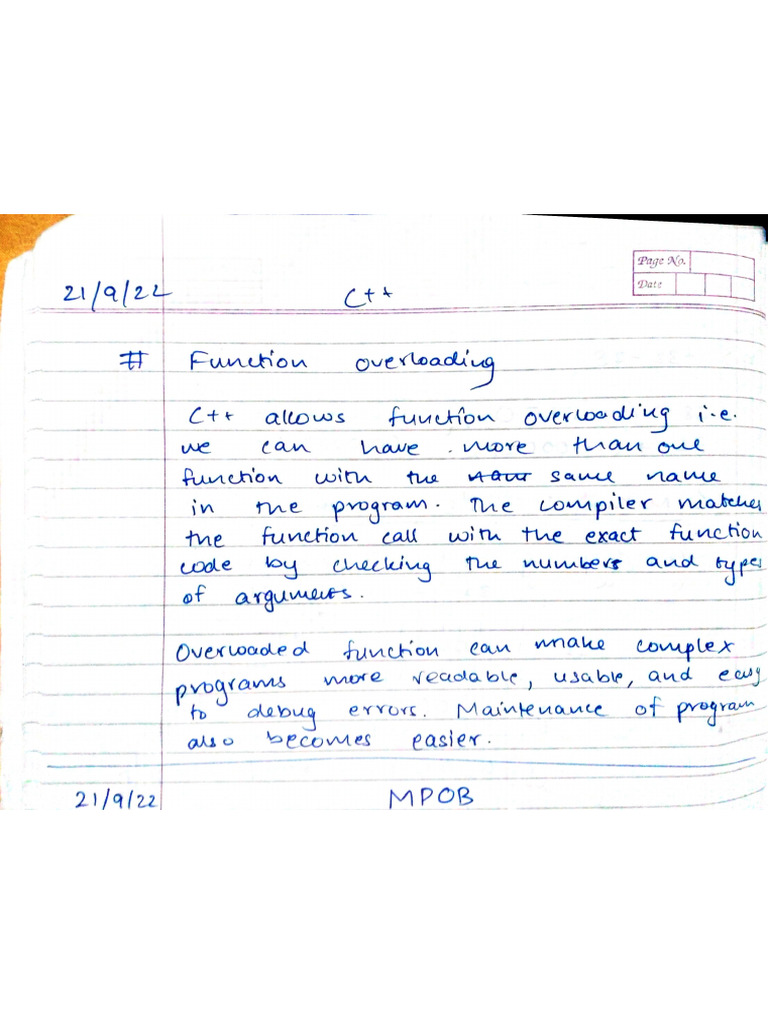 Page No.
Date
21/9/22 C++
# Function overloading
C++ allows function overloading i.e.
we can have more than one
function with the same name
in the program. The compiler matches
the function call with the exact function
code by checking the numbers and types
of arguments.
Overloaded function can make complex
programs more readable, usable, and easy
to debug errors. Maintenance of program
also becomes easier.
21/9/22 MPOB